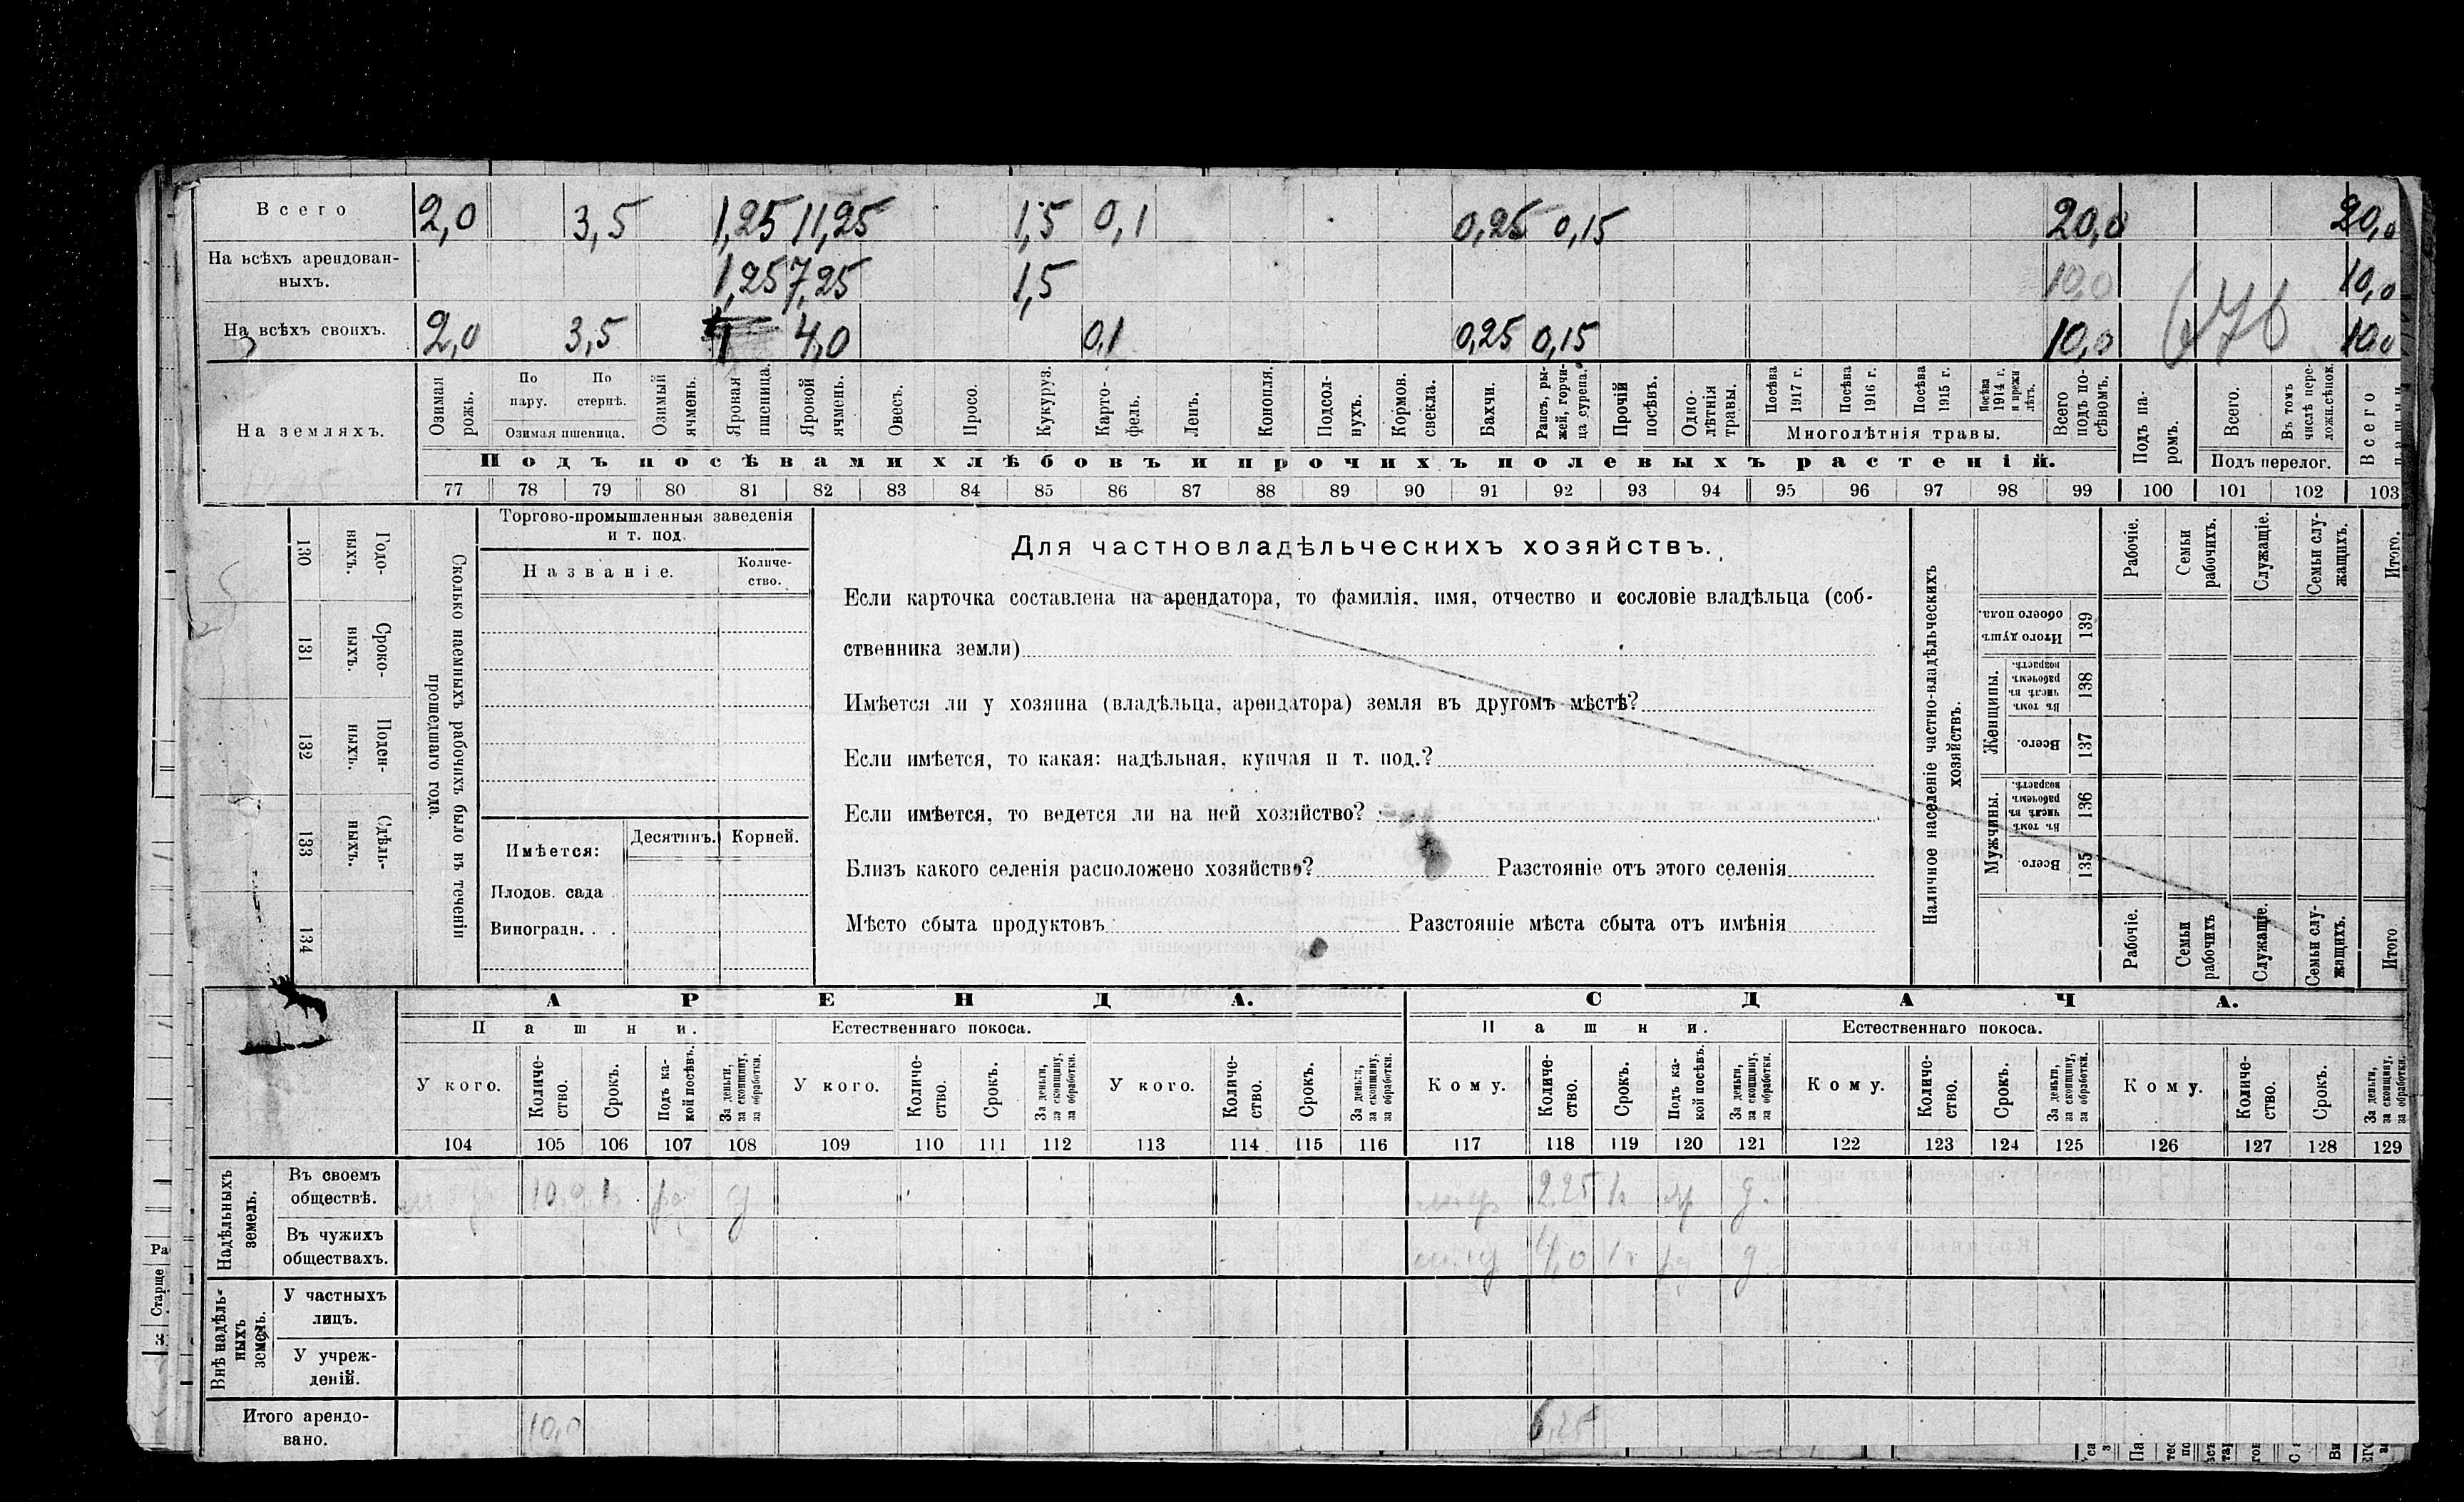 Всего 2,0 3,5 1,25 11,25 1,5 0,1 0,25 0,15 20,0 20,0
На всѣхъ арендован-
ныхъ. 1,25 7,25 1,5 10,0 10,0
На всѣхъ своихъ. 2,0 3,5 4,0 0,1 0,25 0,15 10,0 10,0
676
На земляхъ.
Озимая рожь.
По пару.
По стернѣ.
Озимая пшеница.
Озимый ячмень.
Яровая пшеница.
Яровой ячмень.
Овесъ.
Просо.
Кукуруз.
Карто-
фель.
Ленъ.
Конопля.
Подсол-
нухъ.
Кормов. свекла.
Бахчи.
Рапсъ, ры-
жей, горчи-
ца сурепа.
Прочій посѣвъ.
Одно-
лѣтнія травы.
Посѣва 1917 г.
Посѣва 1916 г.
Посѣва 1915 г.
Посѣва 1914 г. и прежн лѣтъ.
Многолѣтнія травы.
Всего подъ по-
сѣвомъ.
Подъ па-
ромъ.
Всего.
Въ томъ числѣ пере-
ложн.сѣнок.
Подъ перелог.
Всего
Подъ посѣвами хлѣбовъ и прочихъ полевыхъ растеній.
77 78 79 80 81 82 83 84 85 86 87 88 89 90 91 92 93 94 95 96 97 98 99 100 101 102 103
Годо-
выхъ.
130
Сроко-
ныхъ.
131
Поден-
ныхъ.
132
Сдѣль-
ныхъ.
133
134
Сколько наемныхъ рабочихъ было въ теченіи
прошедшаго года.
Торгово-промышленныя заведенія
и т. под.
Названіе.
Количе-
ство.
Имѣется:
Десятинъ.
Корней.
Плодов. сада
Виноградн. . .
Для частновладѣльческихъ хозяйствъ.
Если карточка составлена на арендатора, то фамилія, имя, отчество и сословіе владѣльца (соб-
ственника земли)
Имѣется ли у хозяина (владѣльца, арендатора) земля въ другомъ мѣстѣ?
Если имѣется, то какая: надѣльная, купчая и т. под.?
Если имѣется, то ведется ли на ней хозяйство?
Близъ какого селенія расположено хозяйство? Разстояніе отъ этого селенія
Мѣсто сбыта продуктовъ Разстояніе мѣста сбыта отъ имѣнія
Наличное населеніе частно-владѣльческихъ
хозяйствъ.
Итого душъ обоего пола.
139
Женщины.
Въ томъ числѣ въ рабочемъ возрастѣ.
138
Всего.
137
Мужчины.
Въ томъ числѣ въ рабочемъ возрастѣ.
136
Всего.
135
Рабочіе.
Семьи рабочихъ.
Служащіе.
Семьи слу-
жащихъ.
Итого.
Рабочіе.
Семьи рабочихъ
Служащіе.
Семьи слу-
жащихъ.
Итого
АРЕНДА. СДАЧА.
Пашни. Естественнаго покоса. Пашни. Естественнаго покоса.
У кого.
Количе-
ство.
Срокъ.
Подъ ка-
кой посѣвъ.
За деньги, за скопщину, за обработки.
У кого.
Количе-
ство.
Срокъ.
За деньги, за скопщину, за обработки.
У кого.
Количе-
ство.
Срокъ.
За деньги, за скопщину, за обработки.
Кому.
Количе-
ство.
Срокъ.
Подъ ка-
кой посѣвъ.
За деньги, за скопщину, за обработки.
Кому.
Количе-
ство.
Срокъ.
За деньги, за скопщину, за обработки.
Кому.
Количе-
ство.
Срокъ.
За деньги, за скопщину, за обработки.
104 105 106 107 108 109 110 111 112 113 114 115 116 117 118 119 120 121 122 123 124 125 126 127 128 129
Надѣльныхъ земель.
Въ своемъ
обществѣ. 10,0 2,25 д.
Въ чужихъ
обществахъ. 4,0 д
Внѣ надѣль-
ныхъ земель.
У частныхъ
лицъ.
У учреж-
деній.
Итого арендо-
вано. 10,0 6,25
Ра
Старше
3